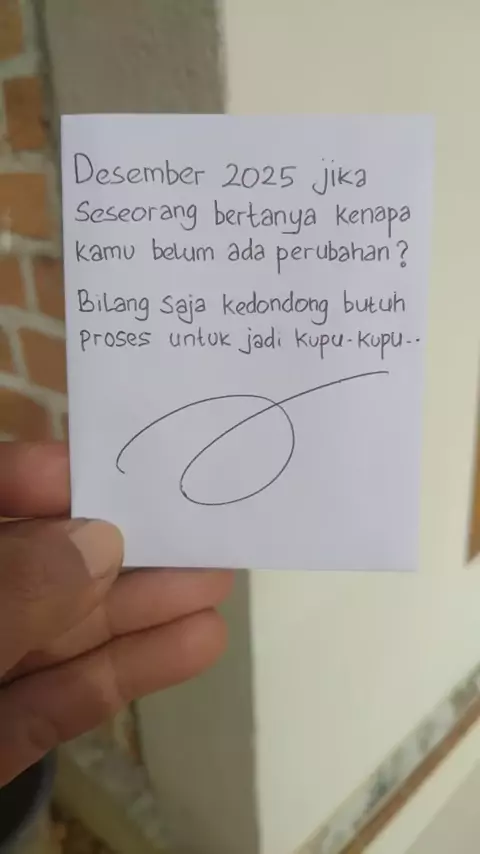 Desember 2025 jika
seseorang bertanya kenapa
kamu belum ada perubahan?
Bilang saja kedondong butuh
proses untuk jadi kupu-kupu..